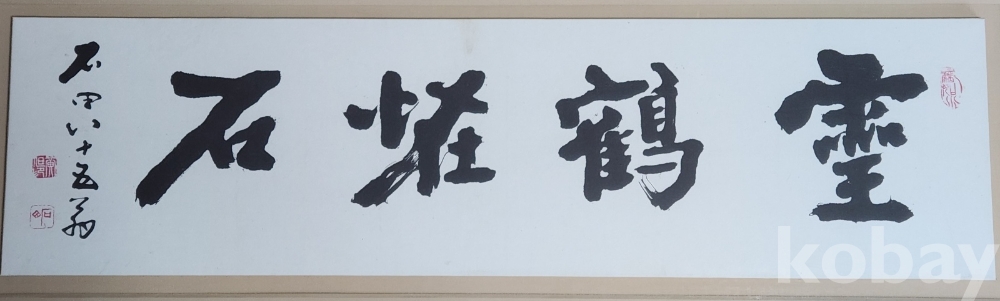 靈鶴恠石
石田八十五翁
kobay